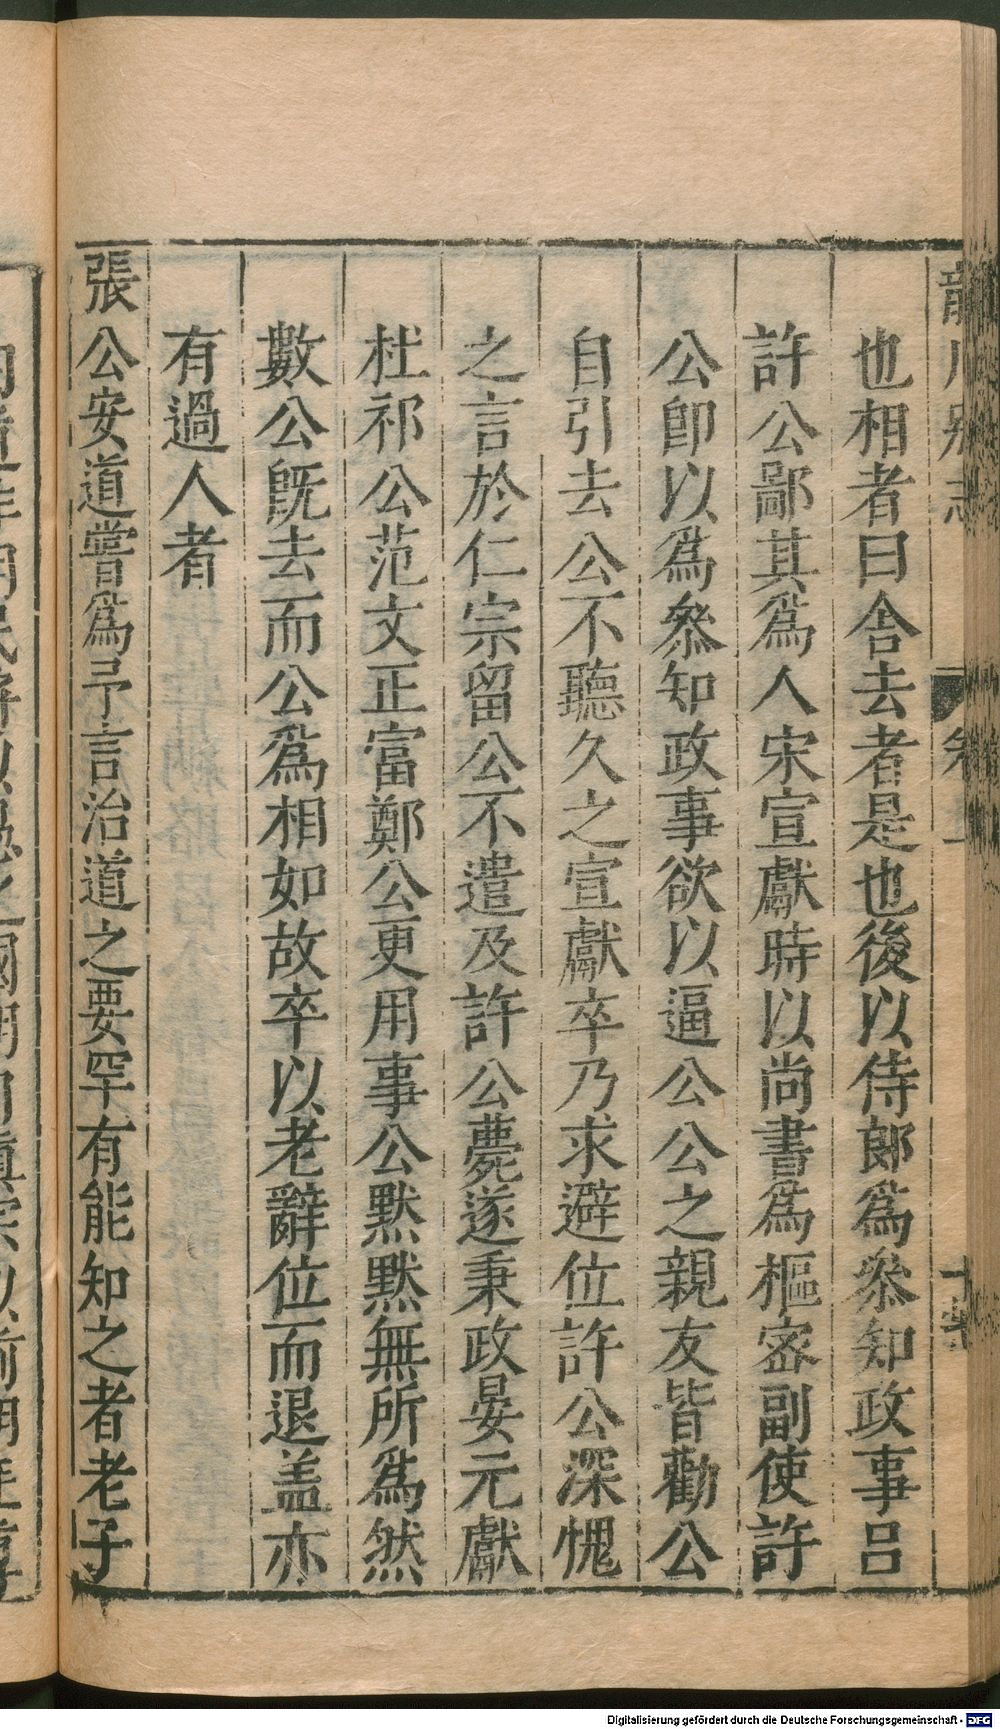 龍川別志
也相者曰舎去者是也後以侍郎爲叅知政事吕
許公鄙其爲人宋宣獻時以尚書爲樞宻副使許
公卽以爲叅知政事欲以逼公公之親友皆勸公
自引去公不聽久之宣獻卒乃求避位許公深愧
之言於仁宗留公不遣及許公薨遂秉政晏元獻
杜祁公范文正富鄭公更用事公默默無所爲然
數公旣去而公爲相如故卒以老辭位而退盖亦
有過人者
張公安道嘗爲予言治道之要罕有能知之者老子
Digitalisierung gefördert durch die Deutsche Forschungsgemeinschaft - DFG